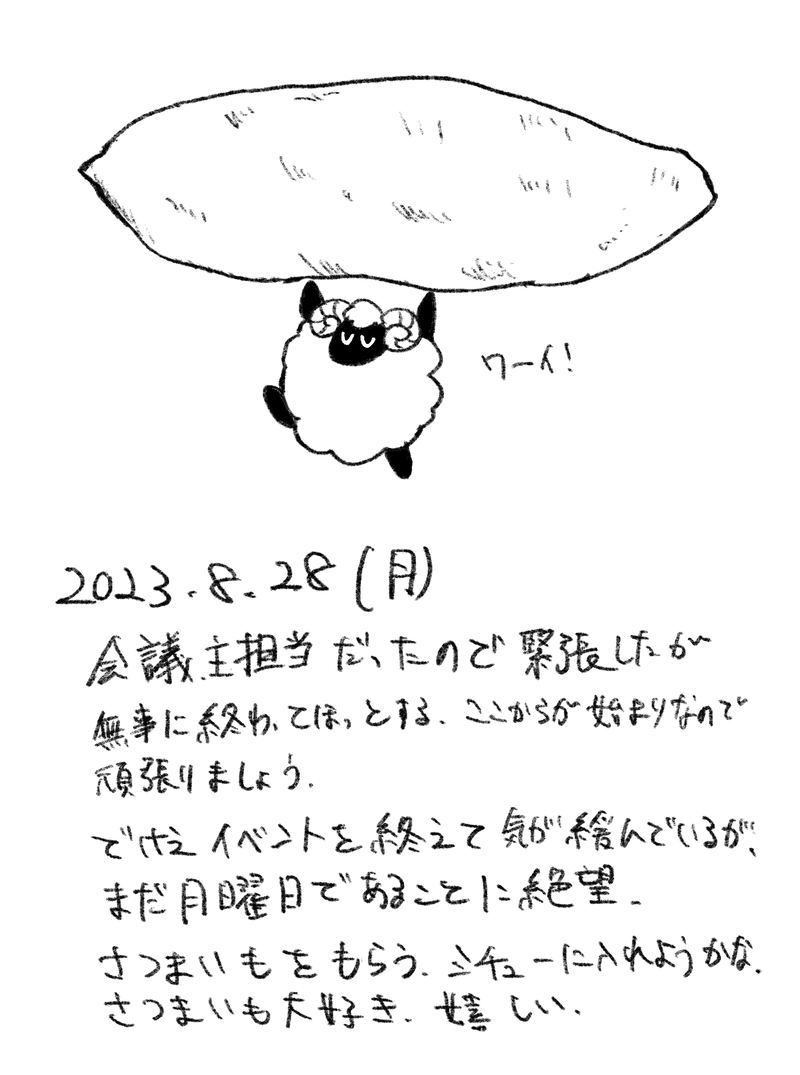 ワーイ!
2023.8.28(月)
会議主担当だったので緊張したが
無事に終わってほっとする. ここからが始まりなので
頑張りましょう.
でけえイベントを終えて気が緩んでいるが、
まだ月曜日であることに絶望.
さつまいもをもらう. シチューに入れようかな.
さつまいも大好き. 嬉しい.